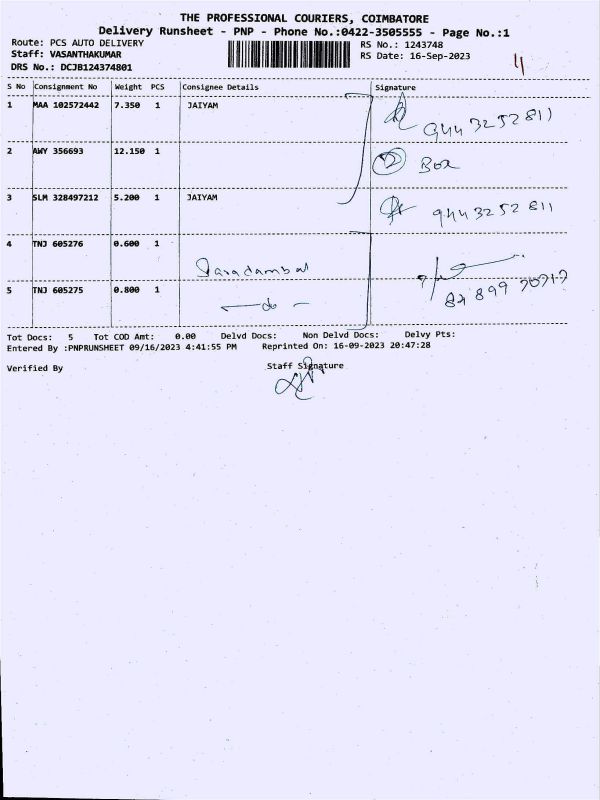 THE PROFESSIONAL COURIERS, COIMBATORE
Delivery Runsheet - PNP - Phone No.:0422-3505555 - Page No.:1
Route: PCS AUTO DELIVERY RS No.: 1243748
Staff: VASANTHAKUMAR RS Date: 16-Sep-2023
DRS No.: DCJB124374801
S No Consignment No Weight PCS Consignee Details Signature
1 MAA 102572442 7.350 1 JAIYAM
9443252811
2 AWY 356693 12.150 1
2 Box
3 SLM 328497212 5.200 1 JAIYAM
9443252811
4 TNJ 605276 0.600 1
Saradambal
5 TNJ 605275 0.800 1
— do —
Tot Docs: 5 Tot COD Amt: 0.00 Delvd Docs: Non Delvd Docs: Delvy Pts:
Entered By :PNPRUNSHEET 09/16/2023 4:41:55 PM Reprinted On: 16-09-2023 20:47:28
Verified By Staff Signature